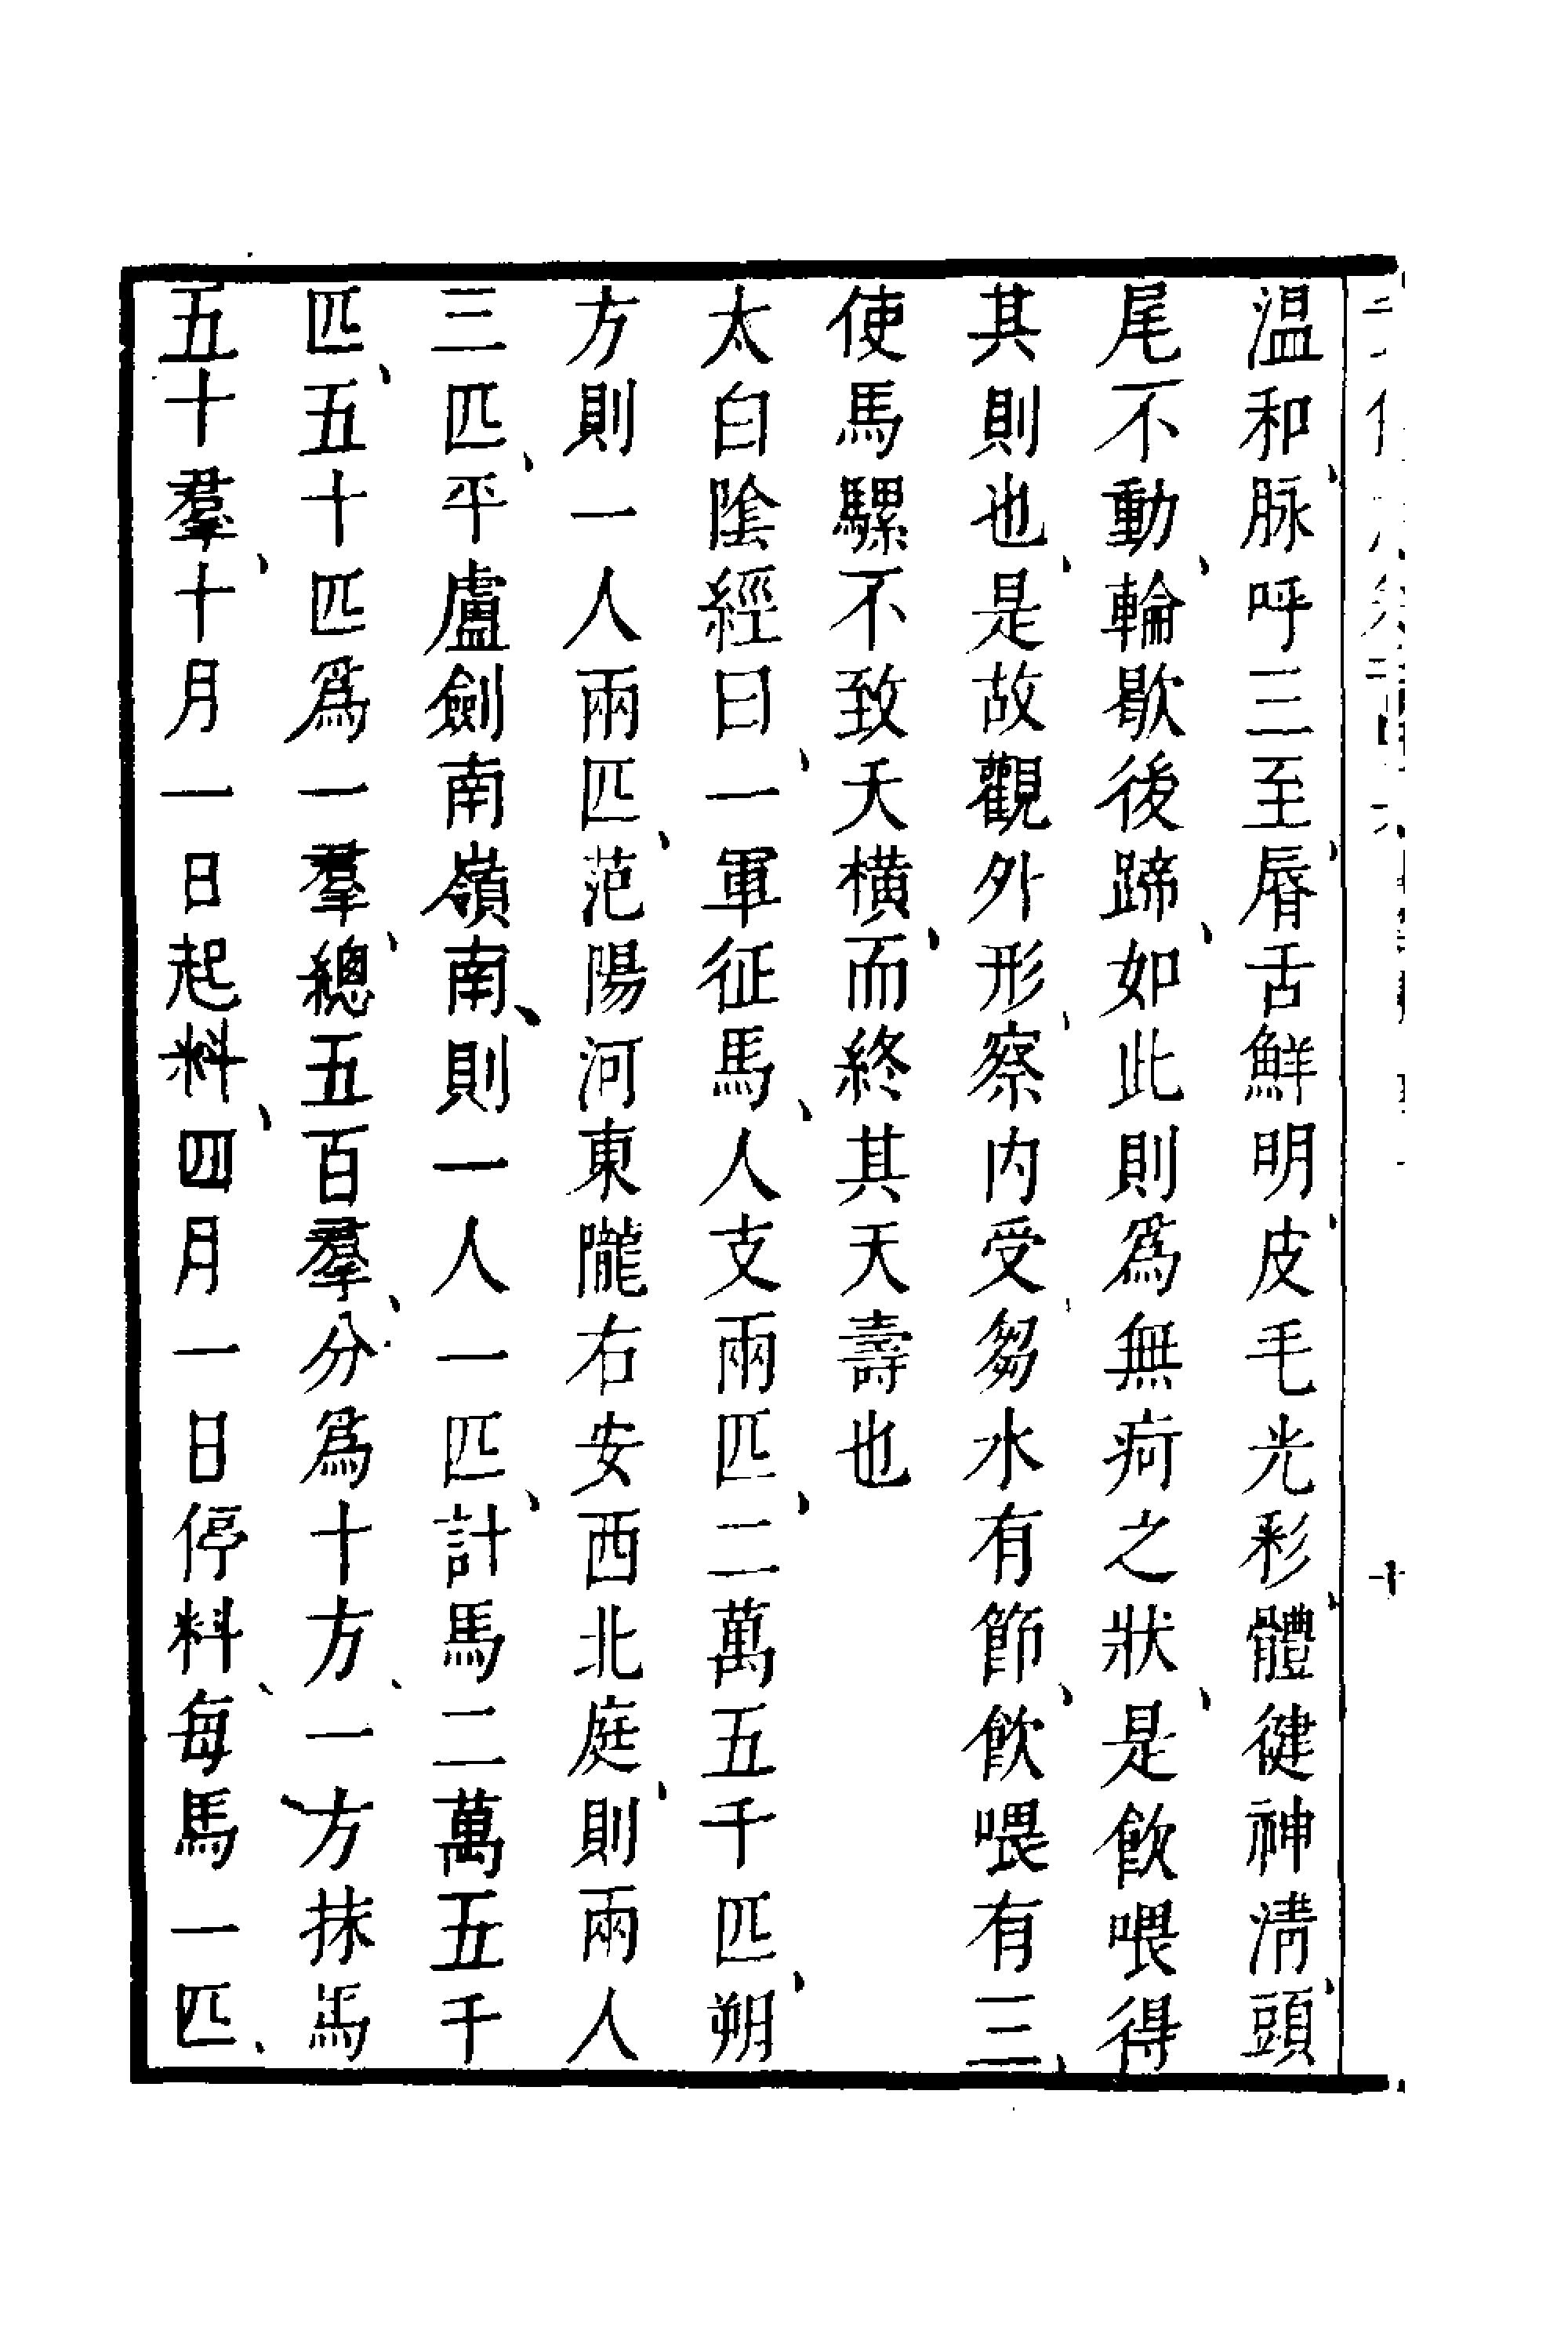 温和、脉呼三至、脣舌鮮明、皮毛光彩、體健神清、頭
尾不動、輪歇後蹄、如此則爲無疴之狀、是飲喂得
其則也、是故觀外形、察内受、芻水有節、飲喂有三、
使馬騾不致夭橫、而終其天壽也
太白陰經曰、一軍征馬、人支兩匹、二萬五千匹、朔
方則一人兩匹、范陽河東隴右安西北庭、則兩人
三匹、平盧劍南嶺南、則一人一匹、計馬二萬五千
匹、五十匹爲一羣、總五百羣、分爲十方、一方抹馬
五十羣、十月一日起料、四月一日停料、每馬一匹、
十